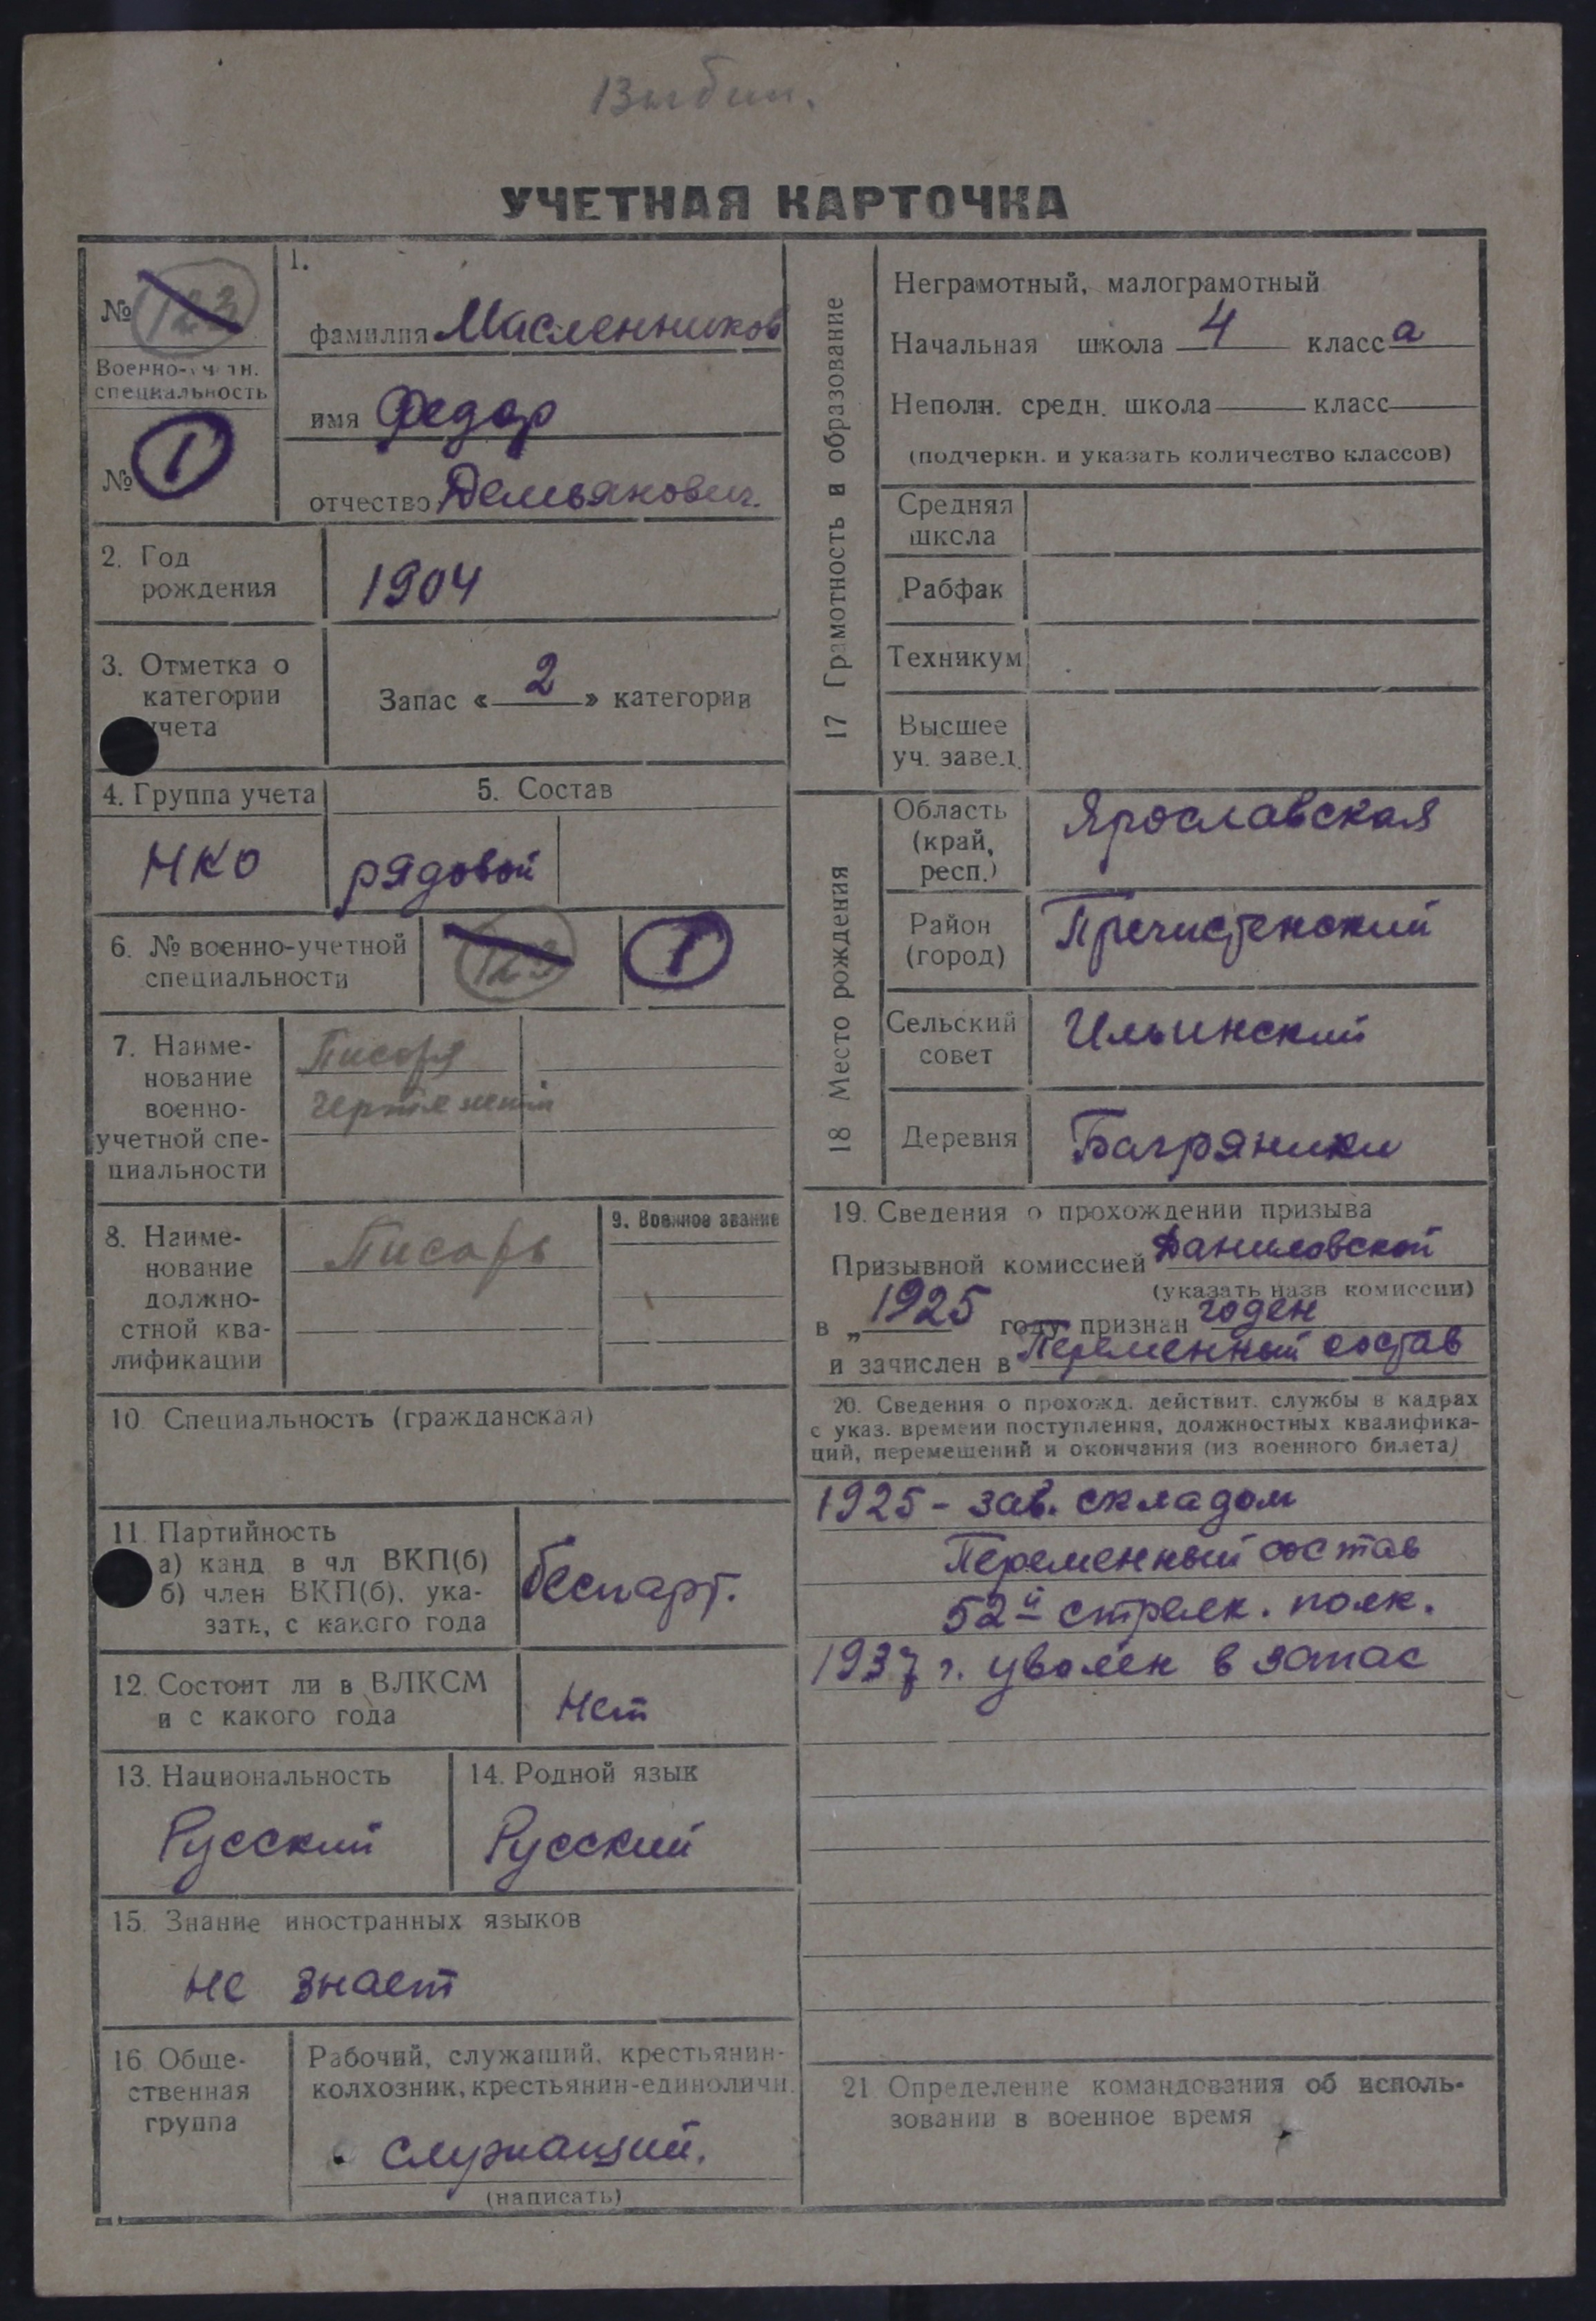 Выбыл.
УЧЕТНАЯ КАРТОЧКА
№ 123
Военно-учетн.
специальность
№ 1
1.
фамилия Масленников
имя Федор
отчество Демьянович.
2. Год
рождения
1904
3. Отметка о
категории
учета
Запас « 2 » категории
4. Группа учета
НКО
5. Состав
рядовой
6. № военно-учетной
специальности
123
1
7. Наиме-
нование
военно-
учетной спе-
циальности
Писаря
8. Наиме-
нование
должно-
стной ква-
лификации
Писарь
9. Военное звание
10. Специальность (гражданская)
11. Партийность
а) канд. в чл ВКП(б)
б) член ВКП(б), ука-
зать, с какого года
беспарт.
12. Состоит ли в ВЛКСМ
и с какого года
Нет
13. Национальность
Русский
14. Родной язык
Русский
15. Знание иностранных языков
не знает
16 Обще-
ственная
группа
Рабочий, служащий, крестьянин-
колхозник, крестьянин-единоличн.
служащий.
(написать)
17 Грамотность и образование
Неграмотный, малограмотный
Начальная школа 4 класса
Неполн. средн. школа класс
(подчеркн. и указать количество классов)
Средняя
школа
Рабфак
Техникум
Высшее
уч. завед.
18 Место рождения
Область
(край,
респ.)
Ярославская
Район
(город)
Пречистенский
Сельский
совет
Ильинский
Деревня
Багряники
19. Сведения о прохождении призыва
Призывной комиссией Даниловской
(указать назв комиссии)
в „ 1925 году признан годен
и зачислен в Переменный состав
20. Сведения о прохожд. действит. службы в кадрах
с указ. времени поступления, должностных квалифика-
ций, перемещений и окончания (из военного билета)
1925 - зав. складом
Переменный состав
52й стрелк. полк.
1937 г. уволен в запас
21 Определение командования об исполь-
зовании в военное время